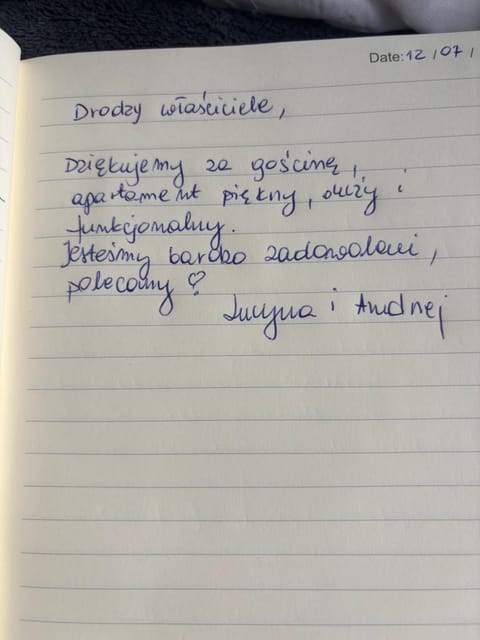 Date: 12 / 07 /
Drodzy właściciele,
Dziękujemy za gościnę,
apartament piękny, duży i
funkcjonalny.
Jesteśmy bardzo zadowoleni,
polecamy ♡
Lucyna i Andrzej